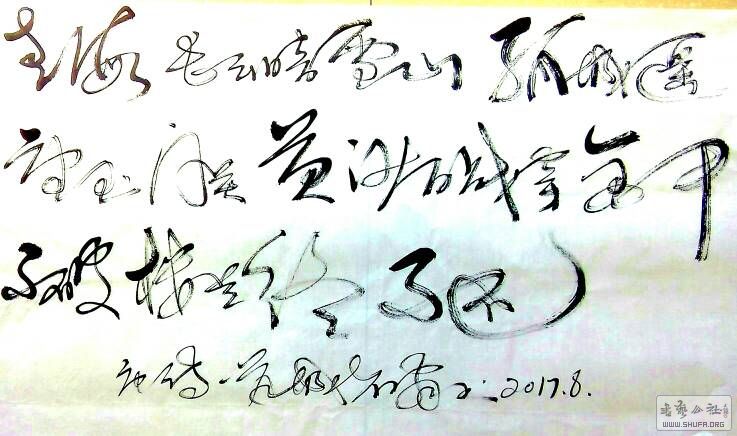 青海长云暗雪山 孤城遥
望玉门关 黄沙百战穿金甲
不破楼兰终不还
2017.8.
书艺公社
WWW.SHUFA.ORG